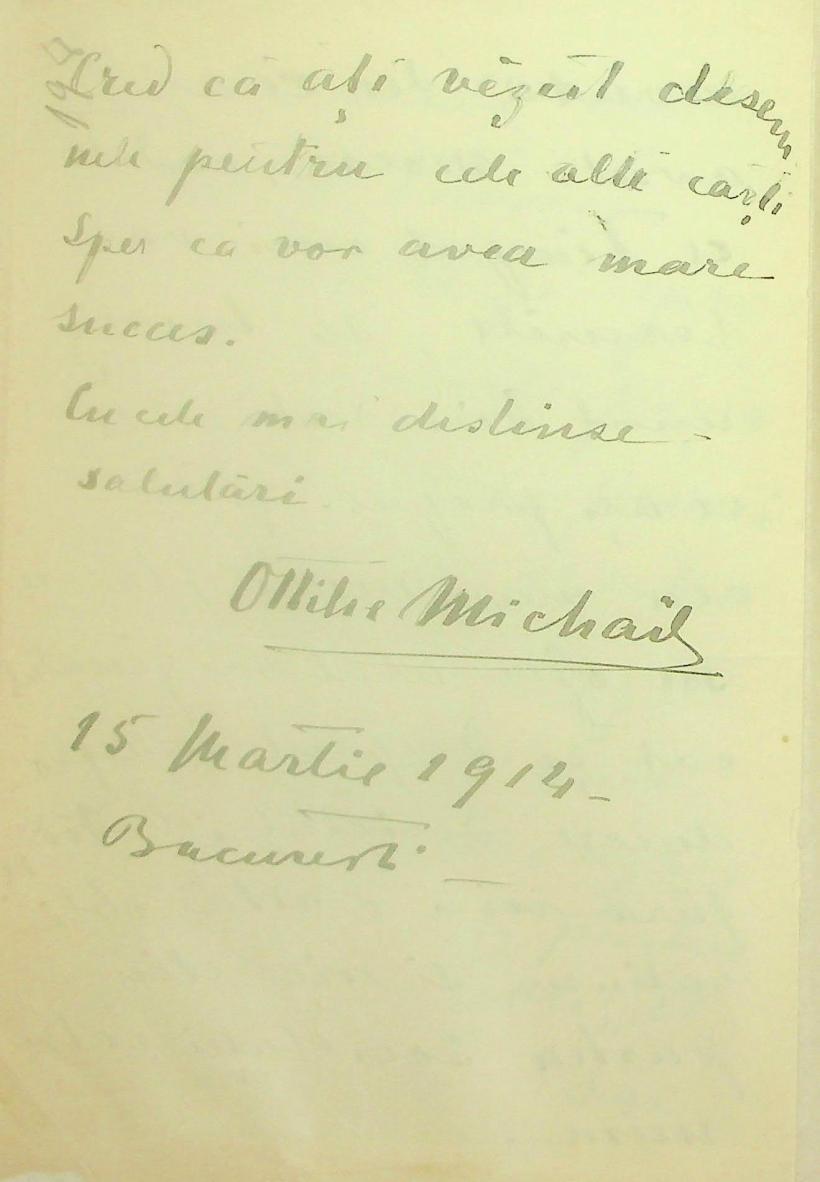 Cred că ați vĕzut desem
nele pentru cele alte cărți
Sper că vor avea mare
succes.
Cu cele mai distinse -
salutări.
Ottilie Michaïl
15 Martie 1914 -
București -